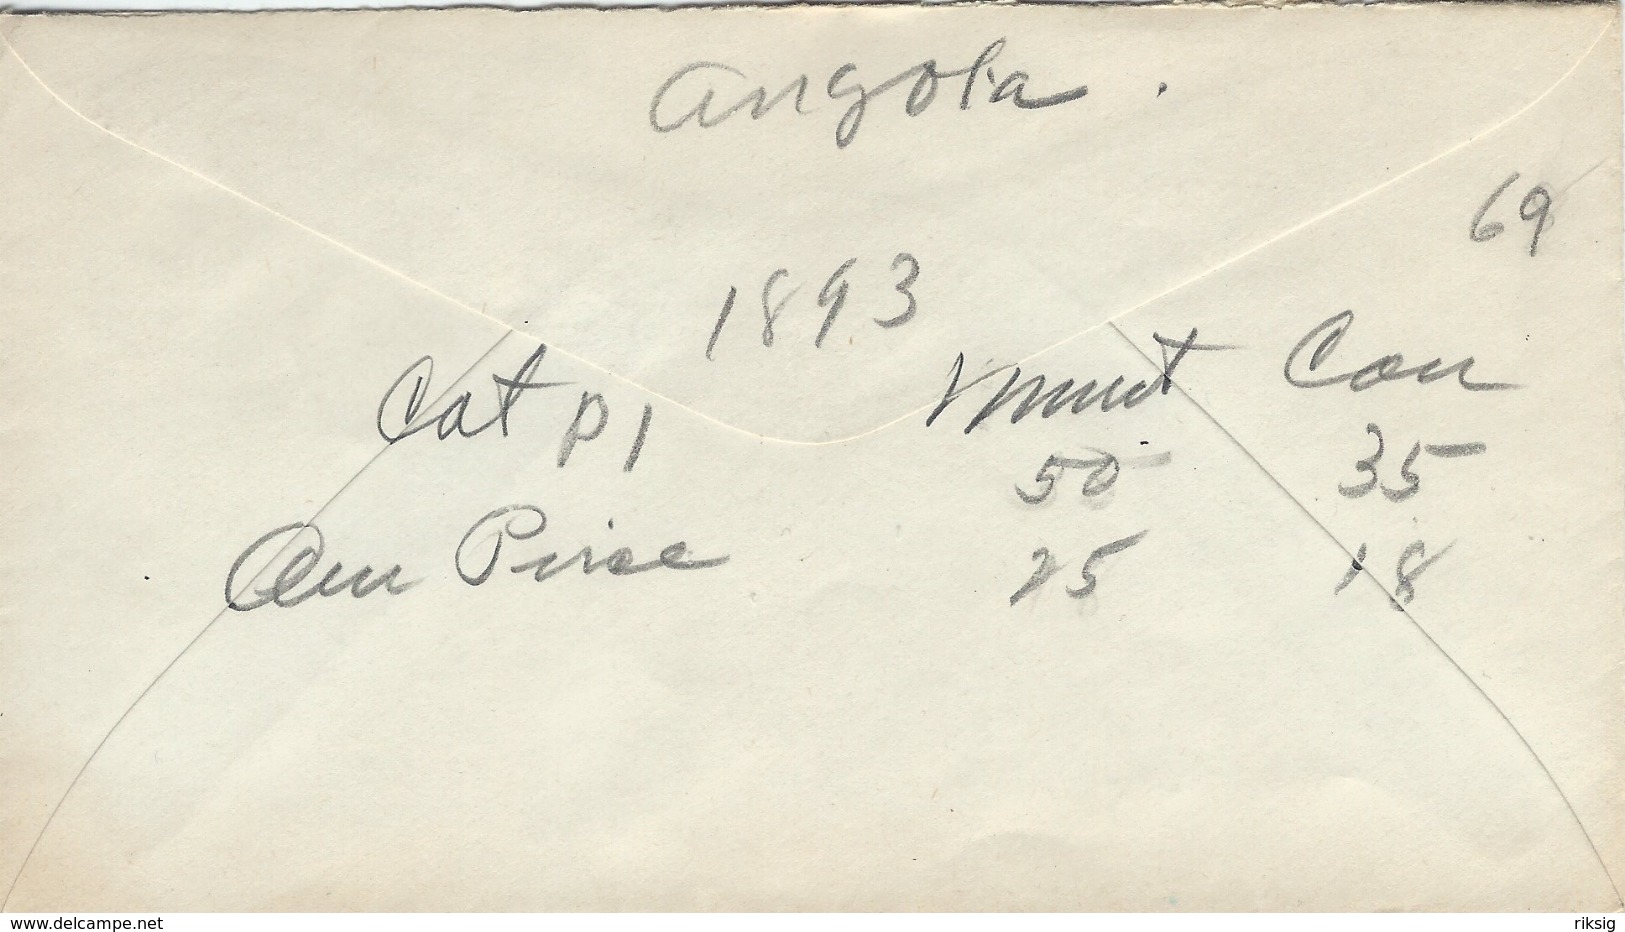 Angola.
69
1893
Cat P1 Mint Can
50 35
Our Price 25 18
www.delcampe.net riksig